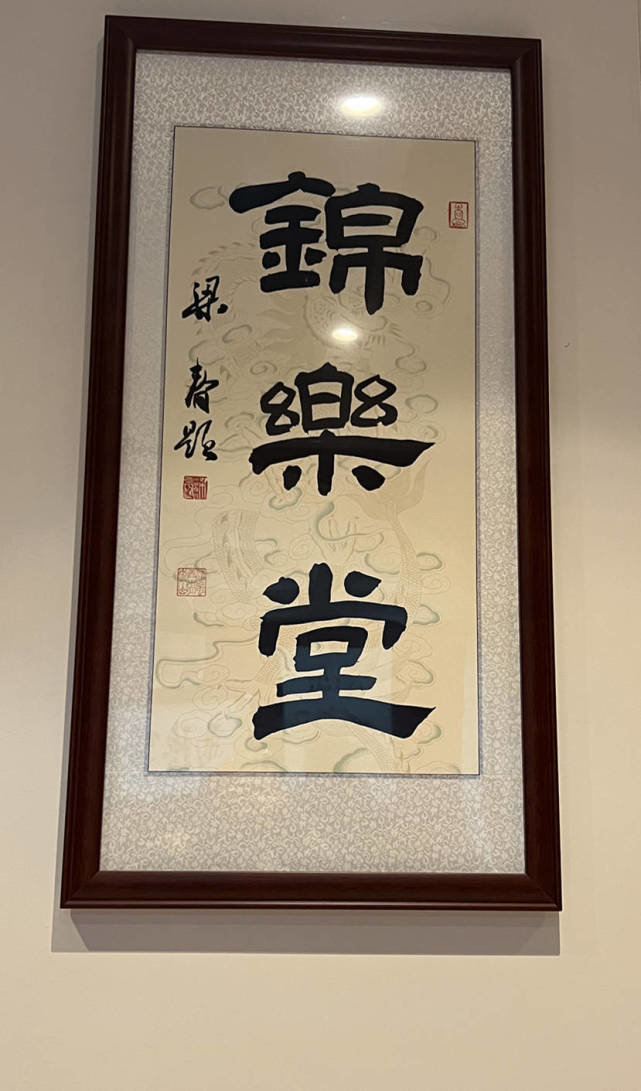 錦樂堂
梁春題